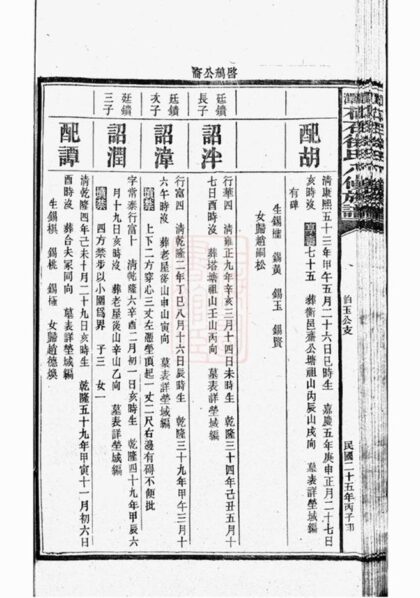 氏八修族譜
玉公支
民國二十五年丙子
配胡
清康熙五十三年甲午五月二十六日巳時生 嘉慶五年庚申正月二十七日
亥時沒 七十五 葬衡邑齋公塘祖山丙辰山戌向 墓表詳塋域編
有碑
生錫 錫黃 錫玉 錫賢
女歸趙嗣松
廷鑌
長子
詔泮
行華四 清雍正九年辛亥三月十四日未時生 乾隆三十四年己丑五月十
七日酉時沒 葬塔塘祖山壬山丙向 墓表詳塋域編
廷鑌
次子
詔漳
行富四 清乾隆二年丁巳八月十六日辰時生 乾隆三十九年甲午三月十
六午時沒 葬老屋後山申山寅向 墓表詳塋域編
墳禁 上下二方穿心三丈左邊塋頂起一丈二尺右邊有碍不便批
廷鑌
三子
詔潤
字常泰行富十 清乾隆六年辛酉二月初一日亥時生 乾隆四十九年甲辰六
月十九日亥時沒 葬老屋後山辛山乙向 墓表詳塋域編
墳禁 四方禁步以小圍爲界 子三 女一
配譚
清乾隆四年己未十月二十九日亥時生 乾隆五十九年甲寅十一月初六日
酉時沒 葬合夫冢同向 墓表詳塋域編
生錫棋 錫桃 錫
女歸趙德煥